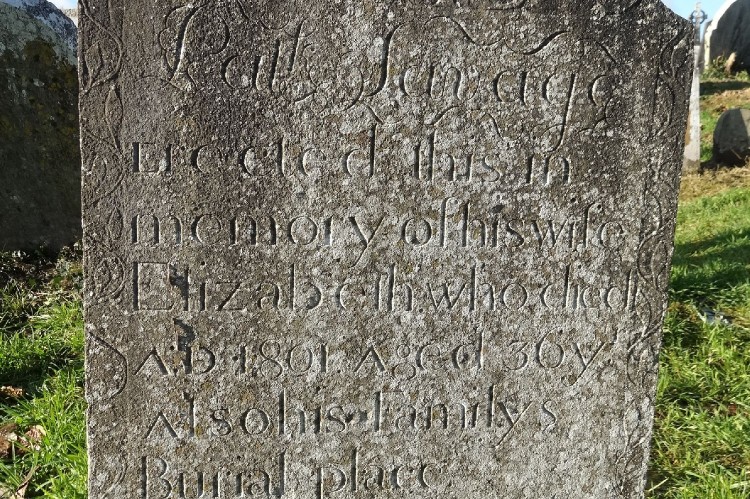 Pat.s Savage
Erected this in
memory of his wife
Elizabeth who died
A.D 1801. Aged 36y.rs
Also his Familys
Burial place